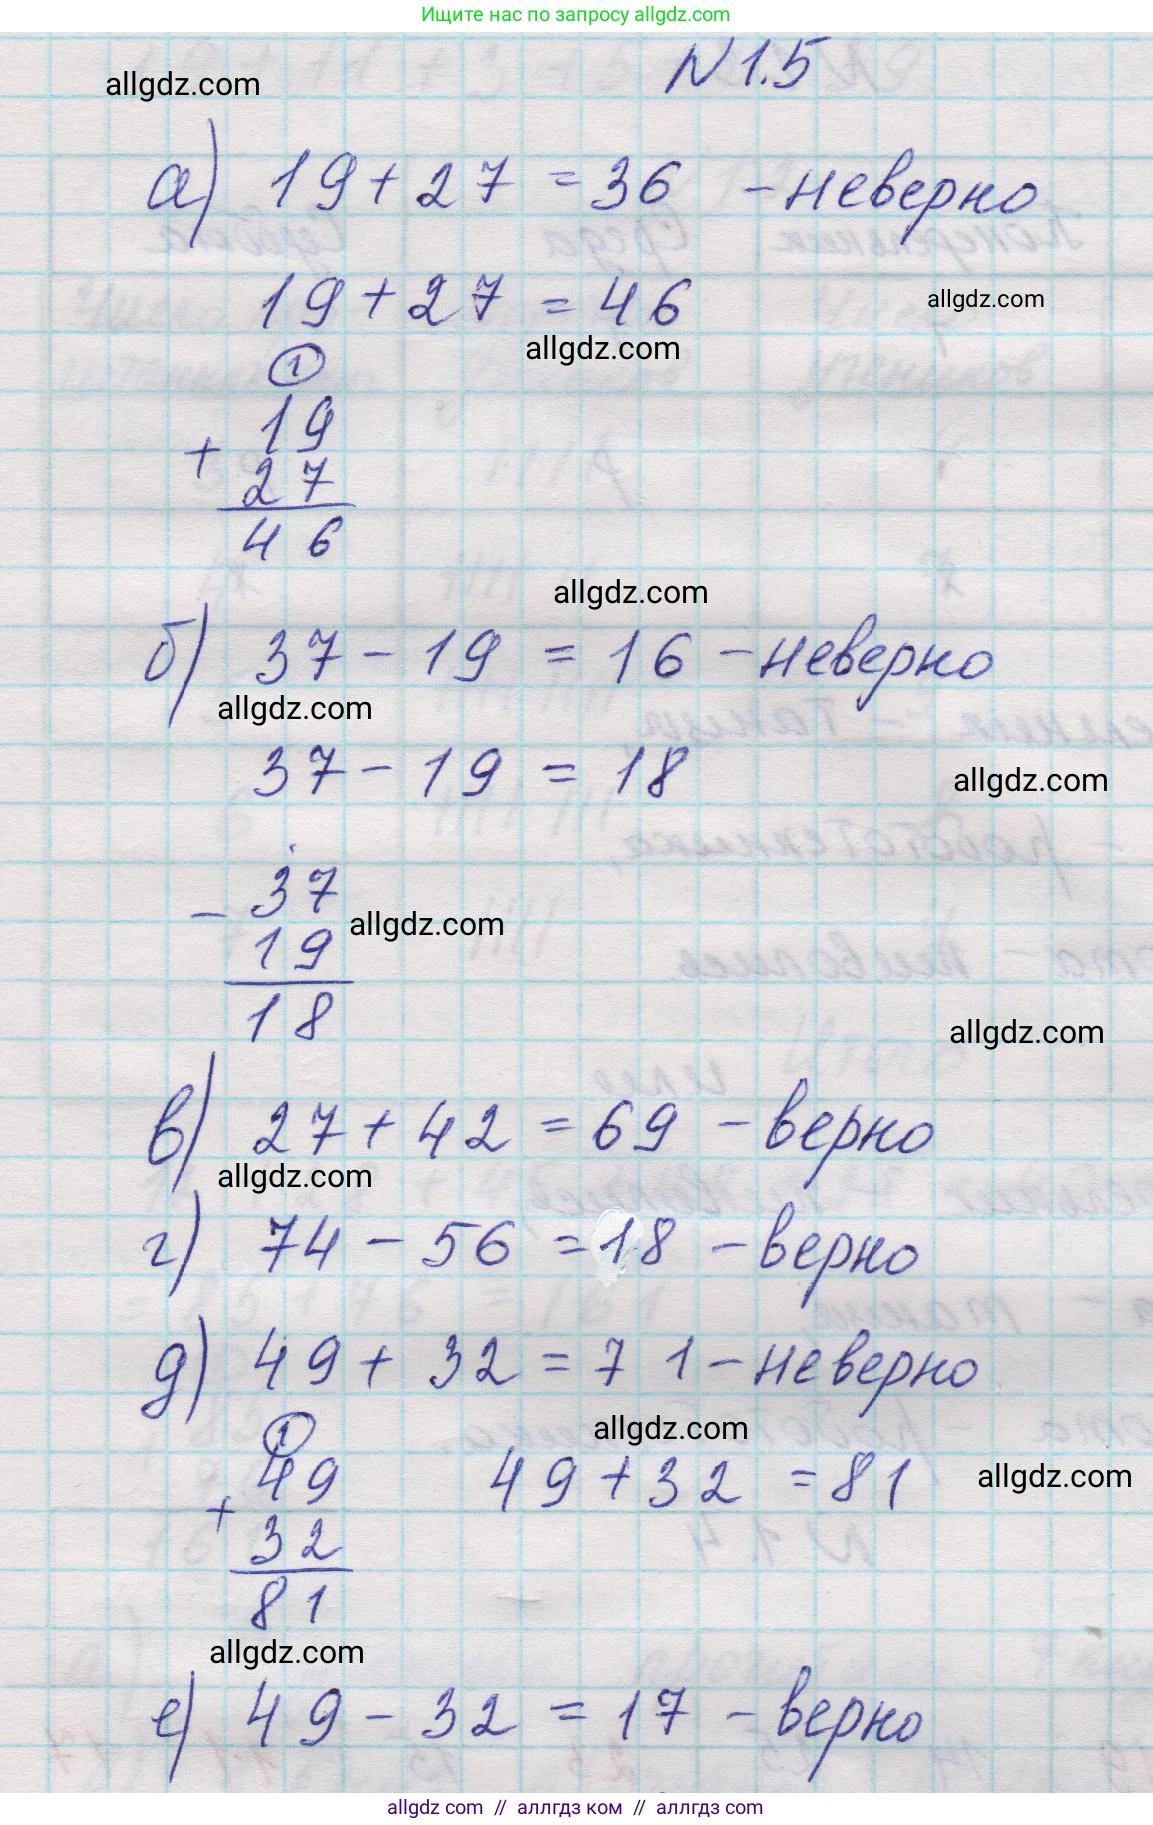 Ищите нас по запросу allgdz.com
N 1.5
allgdz.com
а) 19 + 27 = 36 - неверно
19 + 27 = 46
allgdz.com
allgdz.com
1
19
+
27
46
allgdz.com
б) 37 - 19 = 16 - неверно
allgdz.com
37 - 19 = 18
allgdz.com
37
-
allgdz.com
19
18
allgdz.com
в) 27 + 42 = 69 - верно
allgdz.com
г) 74 - 56 = 18 - верно
д) 49 + 32 = 71 - неверно
1
allgdz.com
49
49 + 32 = 81
allgdz.com
+
32
81
allgdz.com
е) 49 - 32 = 17 - верно
allgdz com // аллгдз ком // allgdz.com